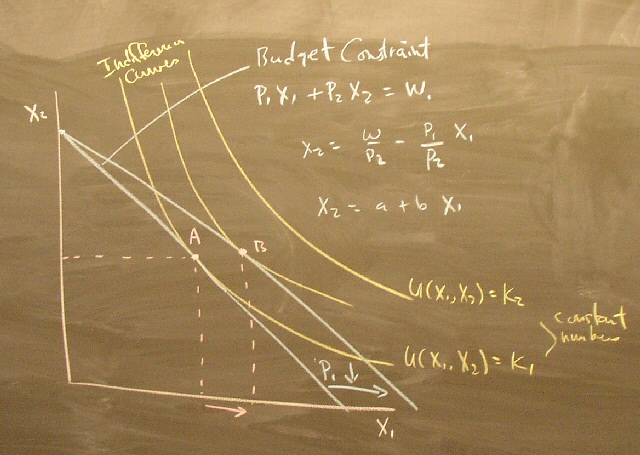 Indifference
Curves
Budget Constraint
P₁ X₁ + P₂ X₂ = W.
X₂
X₂ = W/P₂ - P₁/P₂ X₁
X₂ = a + b X₁
A
B
U(X₁, X₂) = K₂
constant
numbers
U(X₁, X₂) = K₁
P₁ ↓
X₁